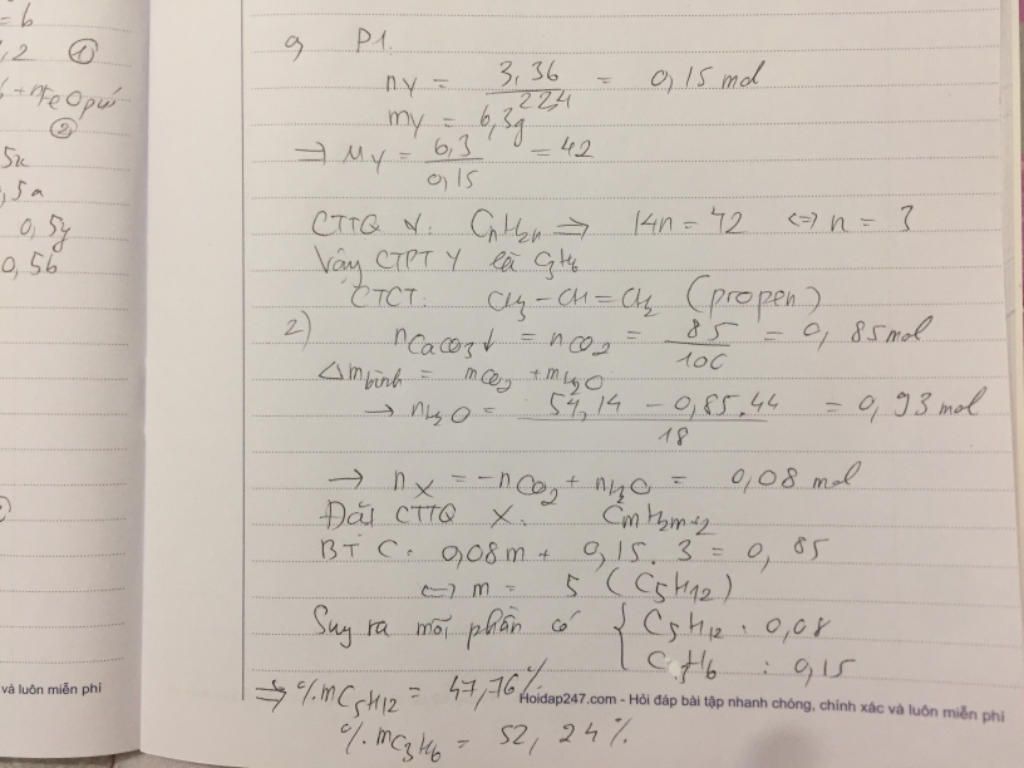 = 6
,2 ①
6 + nFeOpứ
②
5x
,5a
0,5y
0,5b
và luôn miễn phí
a) P1.
nY = 3,36 / 22,4 = 0,15 mol
mY = 6,3g
=> MY = 6,3 / 0,15 = 42
CTTQ Y: CnH2n => 14n = 42 <=> n = 3
Vậy CTPT Y là C3H6
CTCT: CH3 – CH = CH2 (propen)
2) nCaCO3↓ = nCO2 = 85 / 100 = 0,85 mol
Δm bình = mCO2 + mH2O
→ nH2O = 54,14 – 0,85.44 / 18 = 0,93 mol
→ nX = -nCO2 + nH2O = 0,08 mol
Đặt CTTQ X: CmH2m+2
BT C: 0,08m + 0,15.3 = 0,85
<=> m = 5 (C5H12)
Suy ra mỗi phần có { C5H12 : 0,08
C3H6 : 0,15
=> %mC5H12 = 47,76%
Hoidap247.com - Hỏi đáp bài tập nhanh chóng, chính xác và luôn miễn phí
%mC3H6 = 52,24%